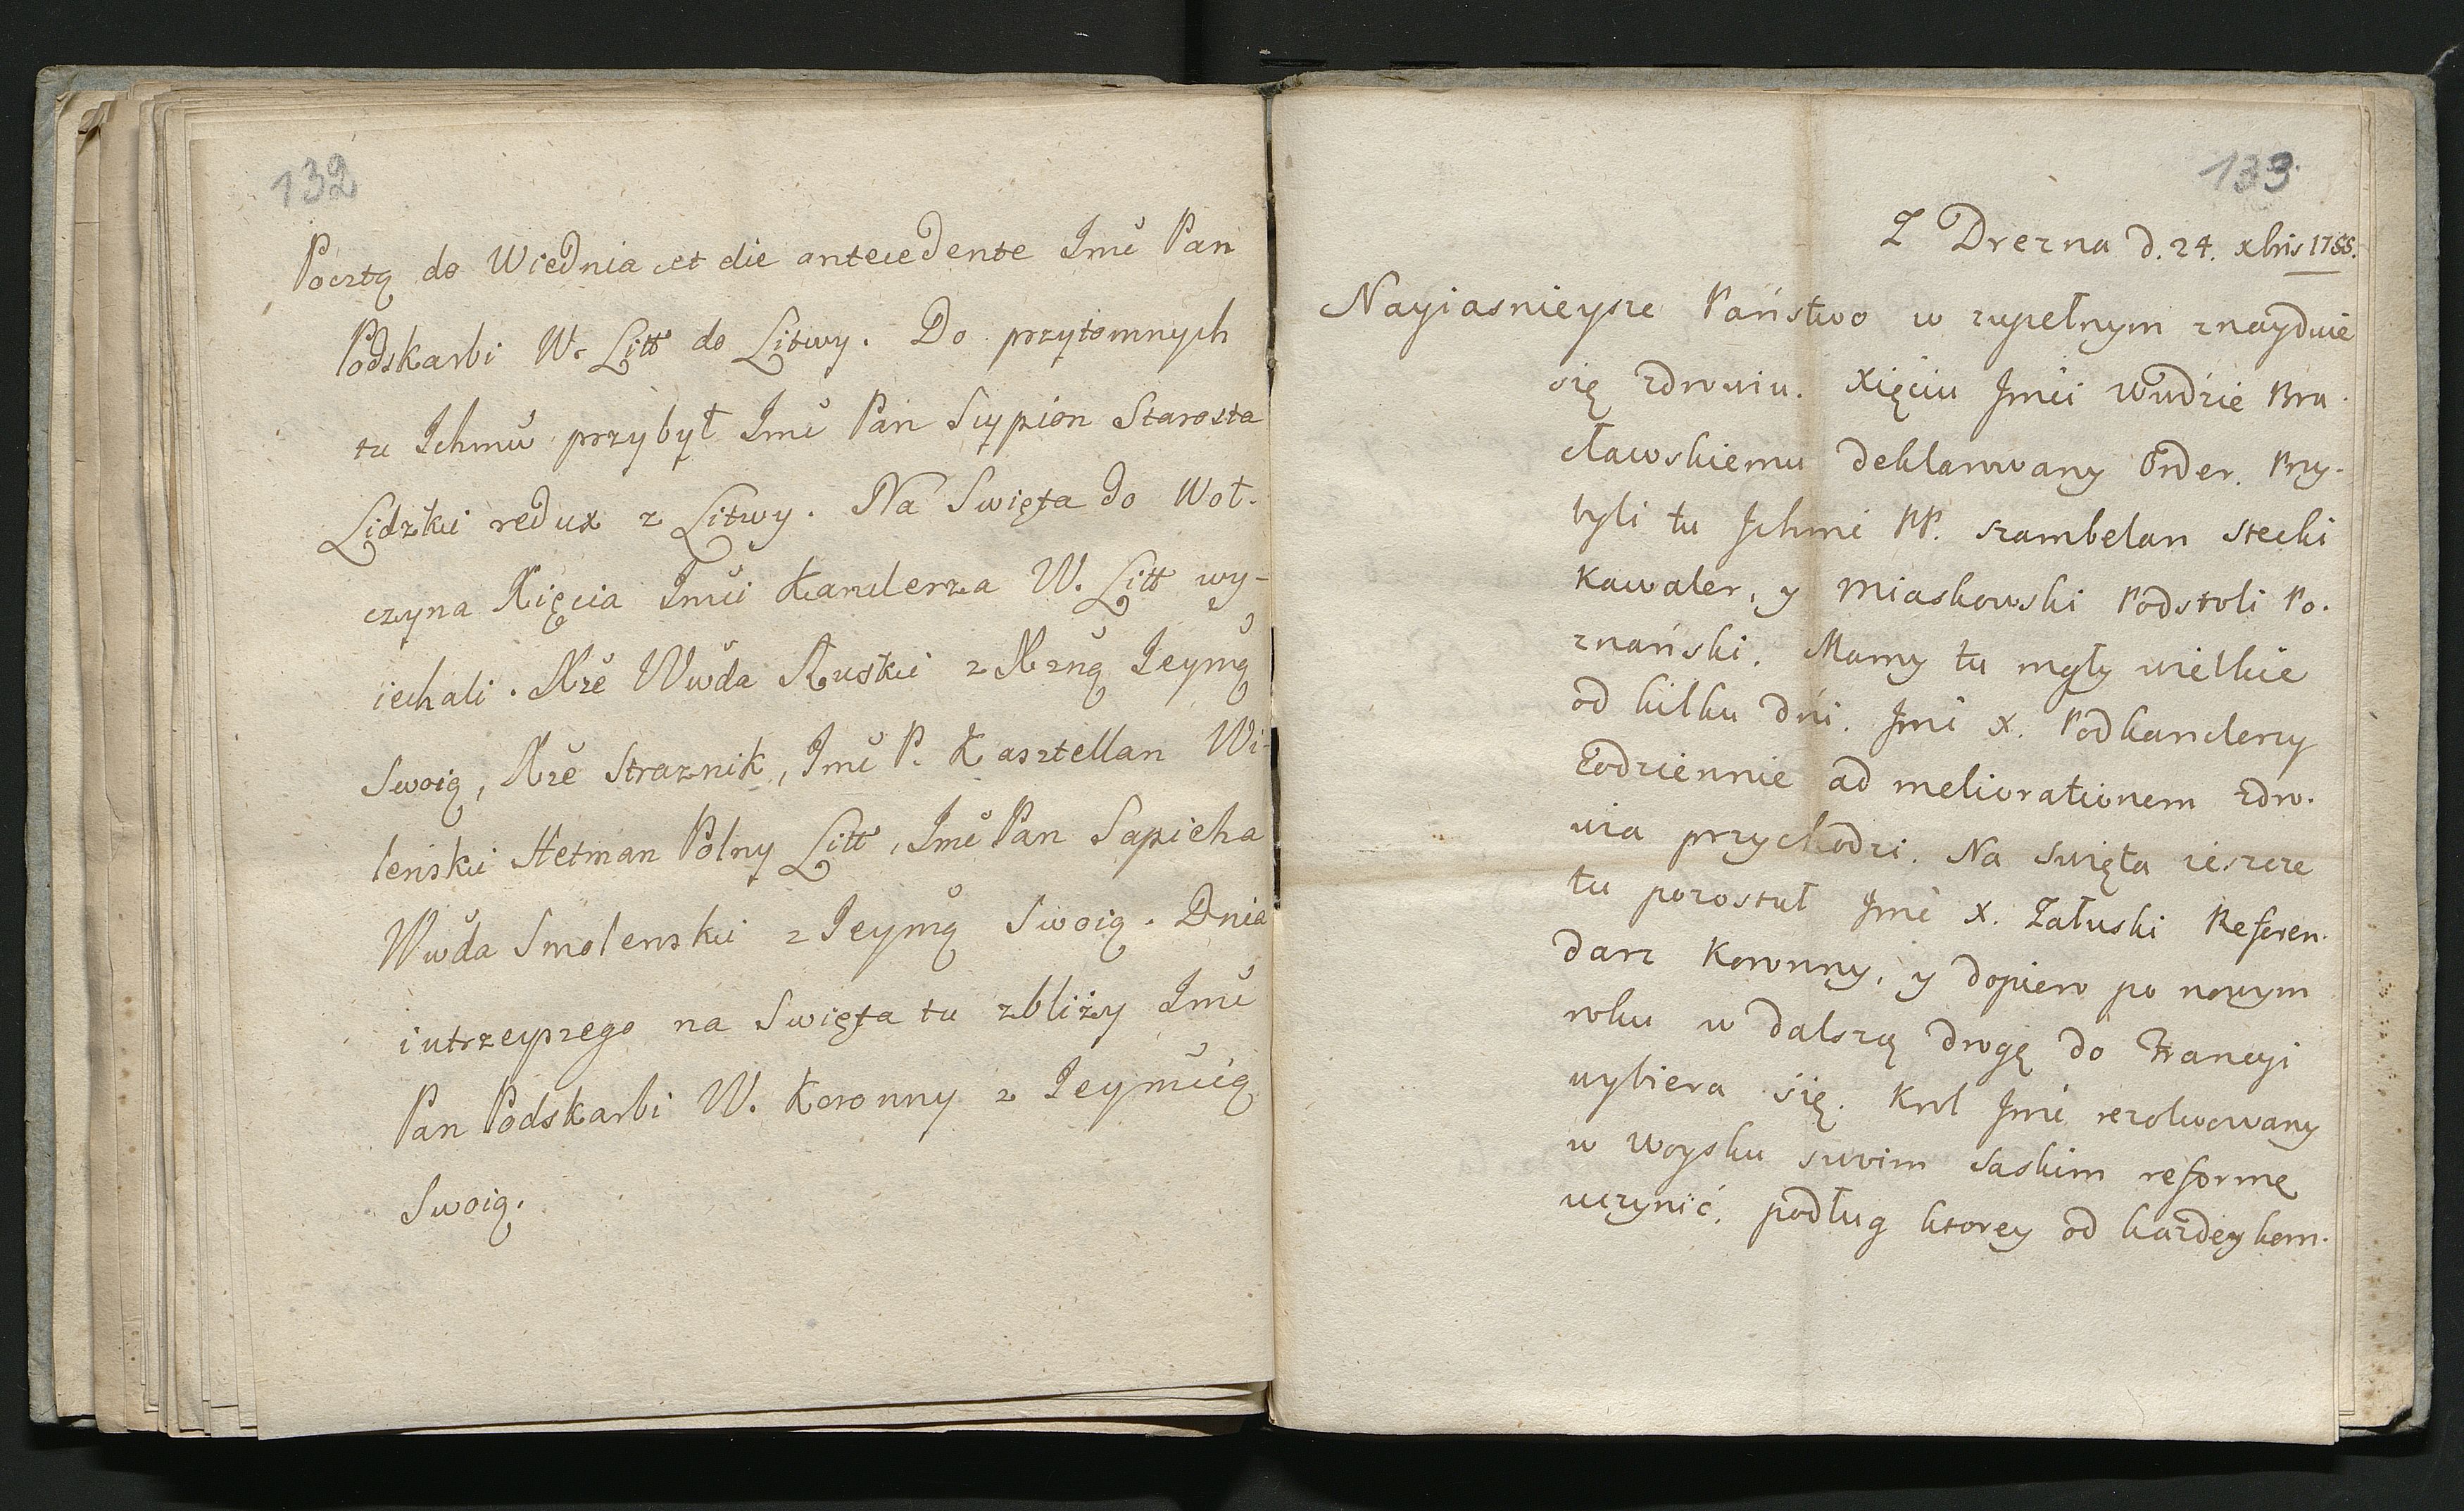 132
Pocztą do Wiednia et die antecedente Jmć Pan
Podskarbi W. Litt do Litwy. Do przytomnych
tu Ichmć przybył Jmć Pan Scypion Starosta
Lidzki redux z Litwy. Na Swięta do Woł-
czyna Xięcia Jmći Kanclerza W. Litt wy-
iechali. Xże Wwda Ruski z Xżną Jeymą
Swoią, Xże Straznik, Jmć P. Kasztellan Wi-
leński Hetman Polny Litt, Jmć Pan Sapieha
Wwda Smolenski z Jeymą Swoią. Dnia
iutrzeyszego na Swięta tu zbliży Jmć
Pan Podskarbi W. Koronny z Jeymćią
Swoią.
133.
Z Drezna d. 24. xbris
Nayiasnieysze Państwo w zupełnym znayduie
się zdrowiu. Xięciu Jmći Wwdzie Bra-
cławskiemu deklarowany Order. Przy-
byli tu Ichmć PP. Szambelan Stecki
Kawaler, y Miaskowski Podstoli Po-
znański. Mamy tu mgły wielkie
od kilku dni. Jmć X. Podkanclerzy
codziennie ad meliorationem zdro-
wia przychodzi. Na Swięta ieszcze
tu pozostał Jmć X. Załuski Referen-
darz Koronny, y dopiero po nowym
roku w dalszą drogę do Francyi
wybiera się. Krol Jmć rezolwowany
w woysku swoim Saskim reformę
uczynić, podług ktorey od każdey kom-